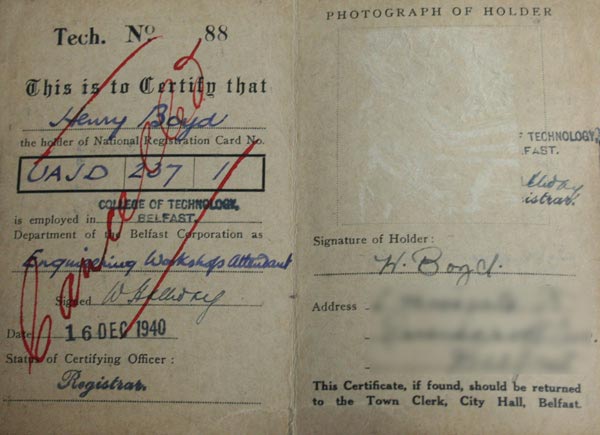 Tech. No. 88
This is to Certify that
Henry Boyd
the holder of National Registration Card No.
UAJD 237 1
COLLEGE OF TECHNOLOGY,
is employed in BELFAST.
Department of the Belfast Corporation as
Engineering Workshops Attendant
Signed W Holliday
Date 16 DEC 1940
Status of Certifying Officer :
Registrar.
Cancelled
PHOTOGRAPH OF HOLDER
F TECHNOLOGY,
FAST.
lliday
istrar.
Signature of Holder :
H. Boyd.
Address
This Certificate, if found, should be returned
to the Town Clerk, City Hall, Belfast.